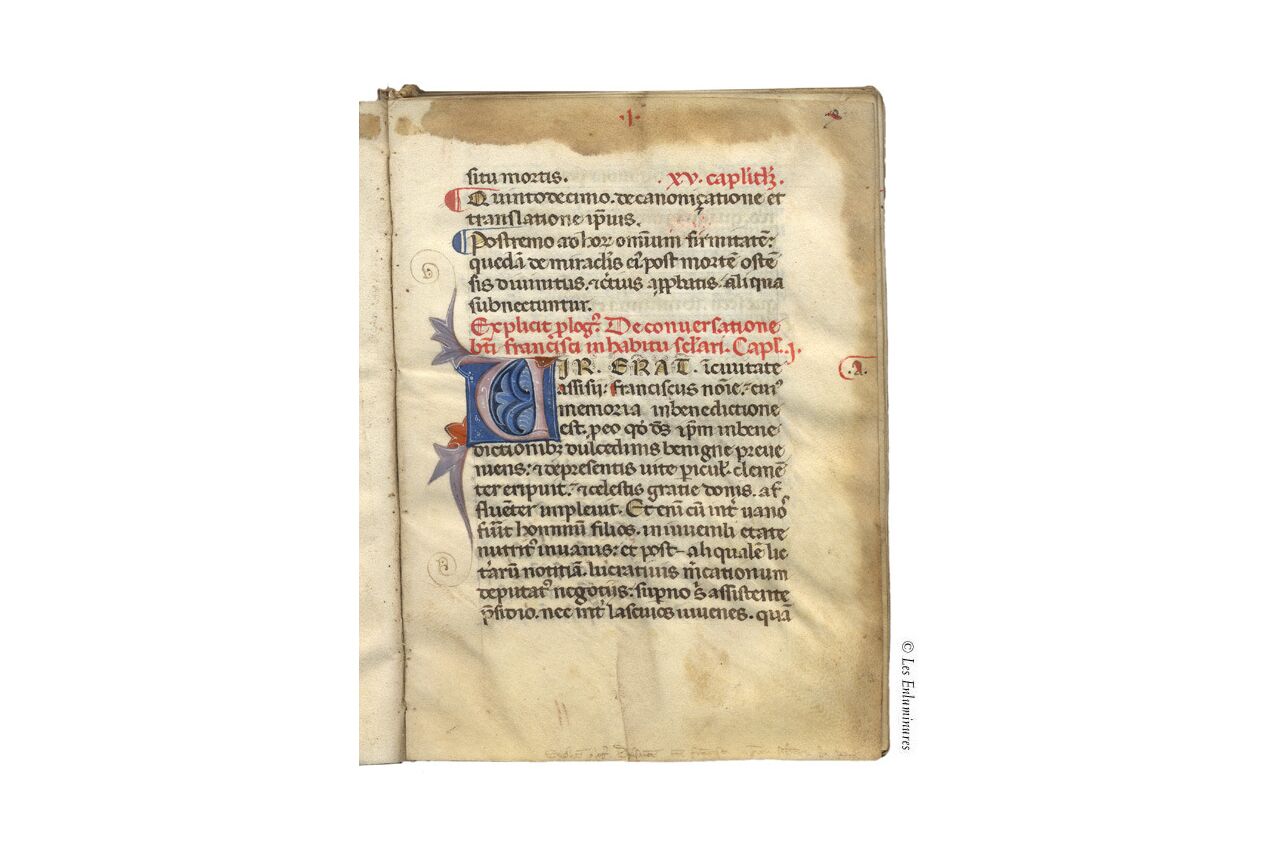 .I.
situ mortis. . xv. capl'itul'z.
Quintodecimo. de canonicatione et
translatione ip̄ius.
Postremo ad hoꝝ omīum firmitatē:
quedā de miraclis eiꝰ post mortē ostē
sis divinitus. ⁊ c̄tius app̄batis. aliqua
subnectuntur.
Explicit p̱logꝰ. De conversatione
bt̄i francisci in habitu sc̄lari. Capl. j.
VIR. ERAT. ī civitate
assisij: franciscus noīe: cuiꝰ
memoria in benedictione
est. p̱ eo qđ dꝰs ip̄m in bene
dictionibꝫ dulcedinis benigne preve
niens: ⁊ de presentis vite p̱icul'. clemē
ter eripuit: ⁊ celestis gratie donis. af
fluēter implevit. Et eni cū int̄ vanoꝰ
fuīt hominū filios. in iuvenili etate
nutritꝰ in vanis: et post aliqualē lit
t̄arū notitiā. lucrativis m̄cationum
deputatꝰ negotiis: sup̱no s̄ assistente
p̄sidio. nec int̄ lascivos iuvenes. quā
.a.
© Les Enluminures